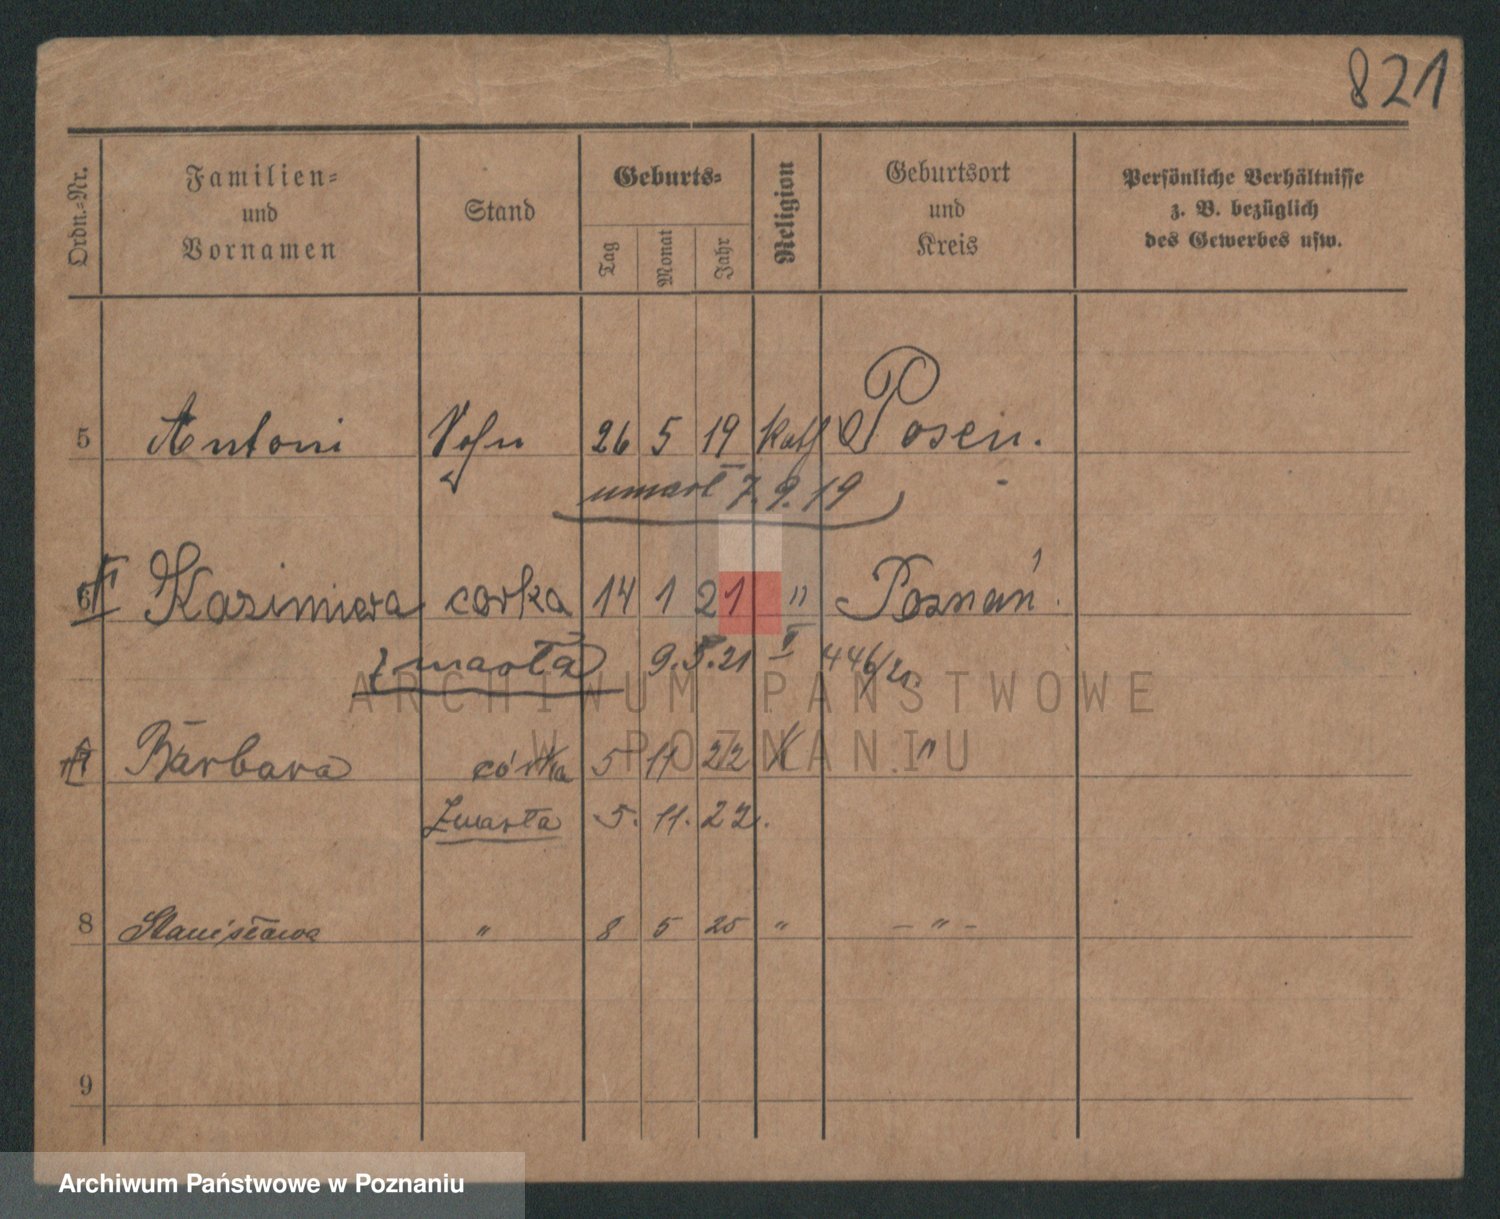 821
Ordn.-Nr.
Familien-
und
Vornamen
Stand
Geburts-
Tag
Monat
Jahr
Religion
Geburtsort
und
Kreis
Persönliche Verhältnisse
z. B. bezüglich
des Gewerbes usw.
5 Antoni Sohn 26 5 19 kath Posen.
umarł 7.9.19
6 Kazimiera corka 14 1 21 " Poznań.
zmarła 9.5.21 446/21.
7 Barbara córka 5 11 22 K "
Zmarła 5. 11. 22.
8 Stanisława " 8 5 25 " - " -
9
ARCHIWUM PAŃSTWOWE
W POZNANIU
Archiwum Państwowe w Poznaniu